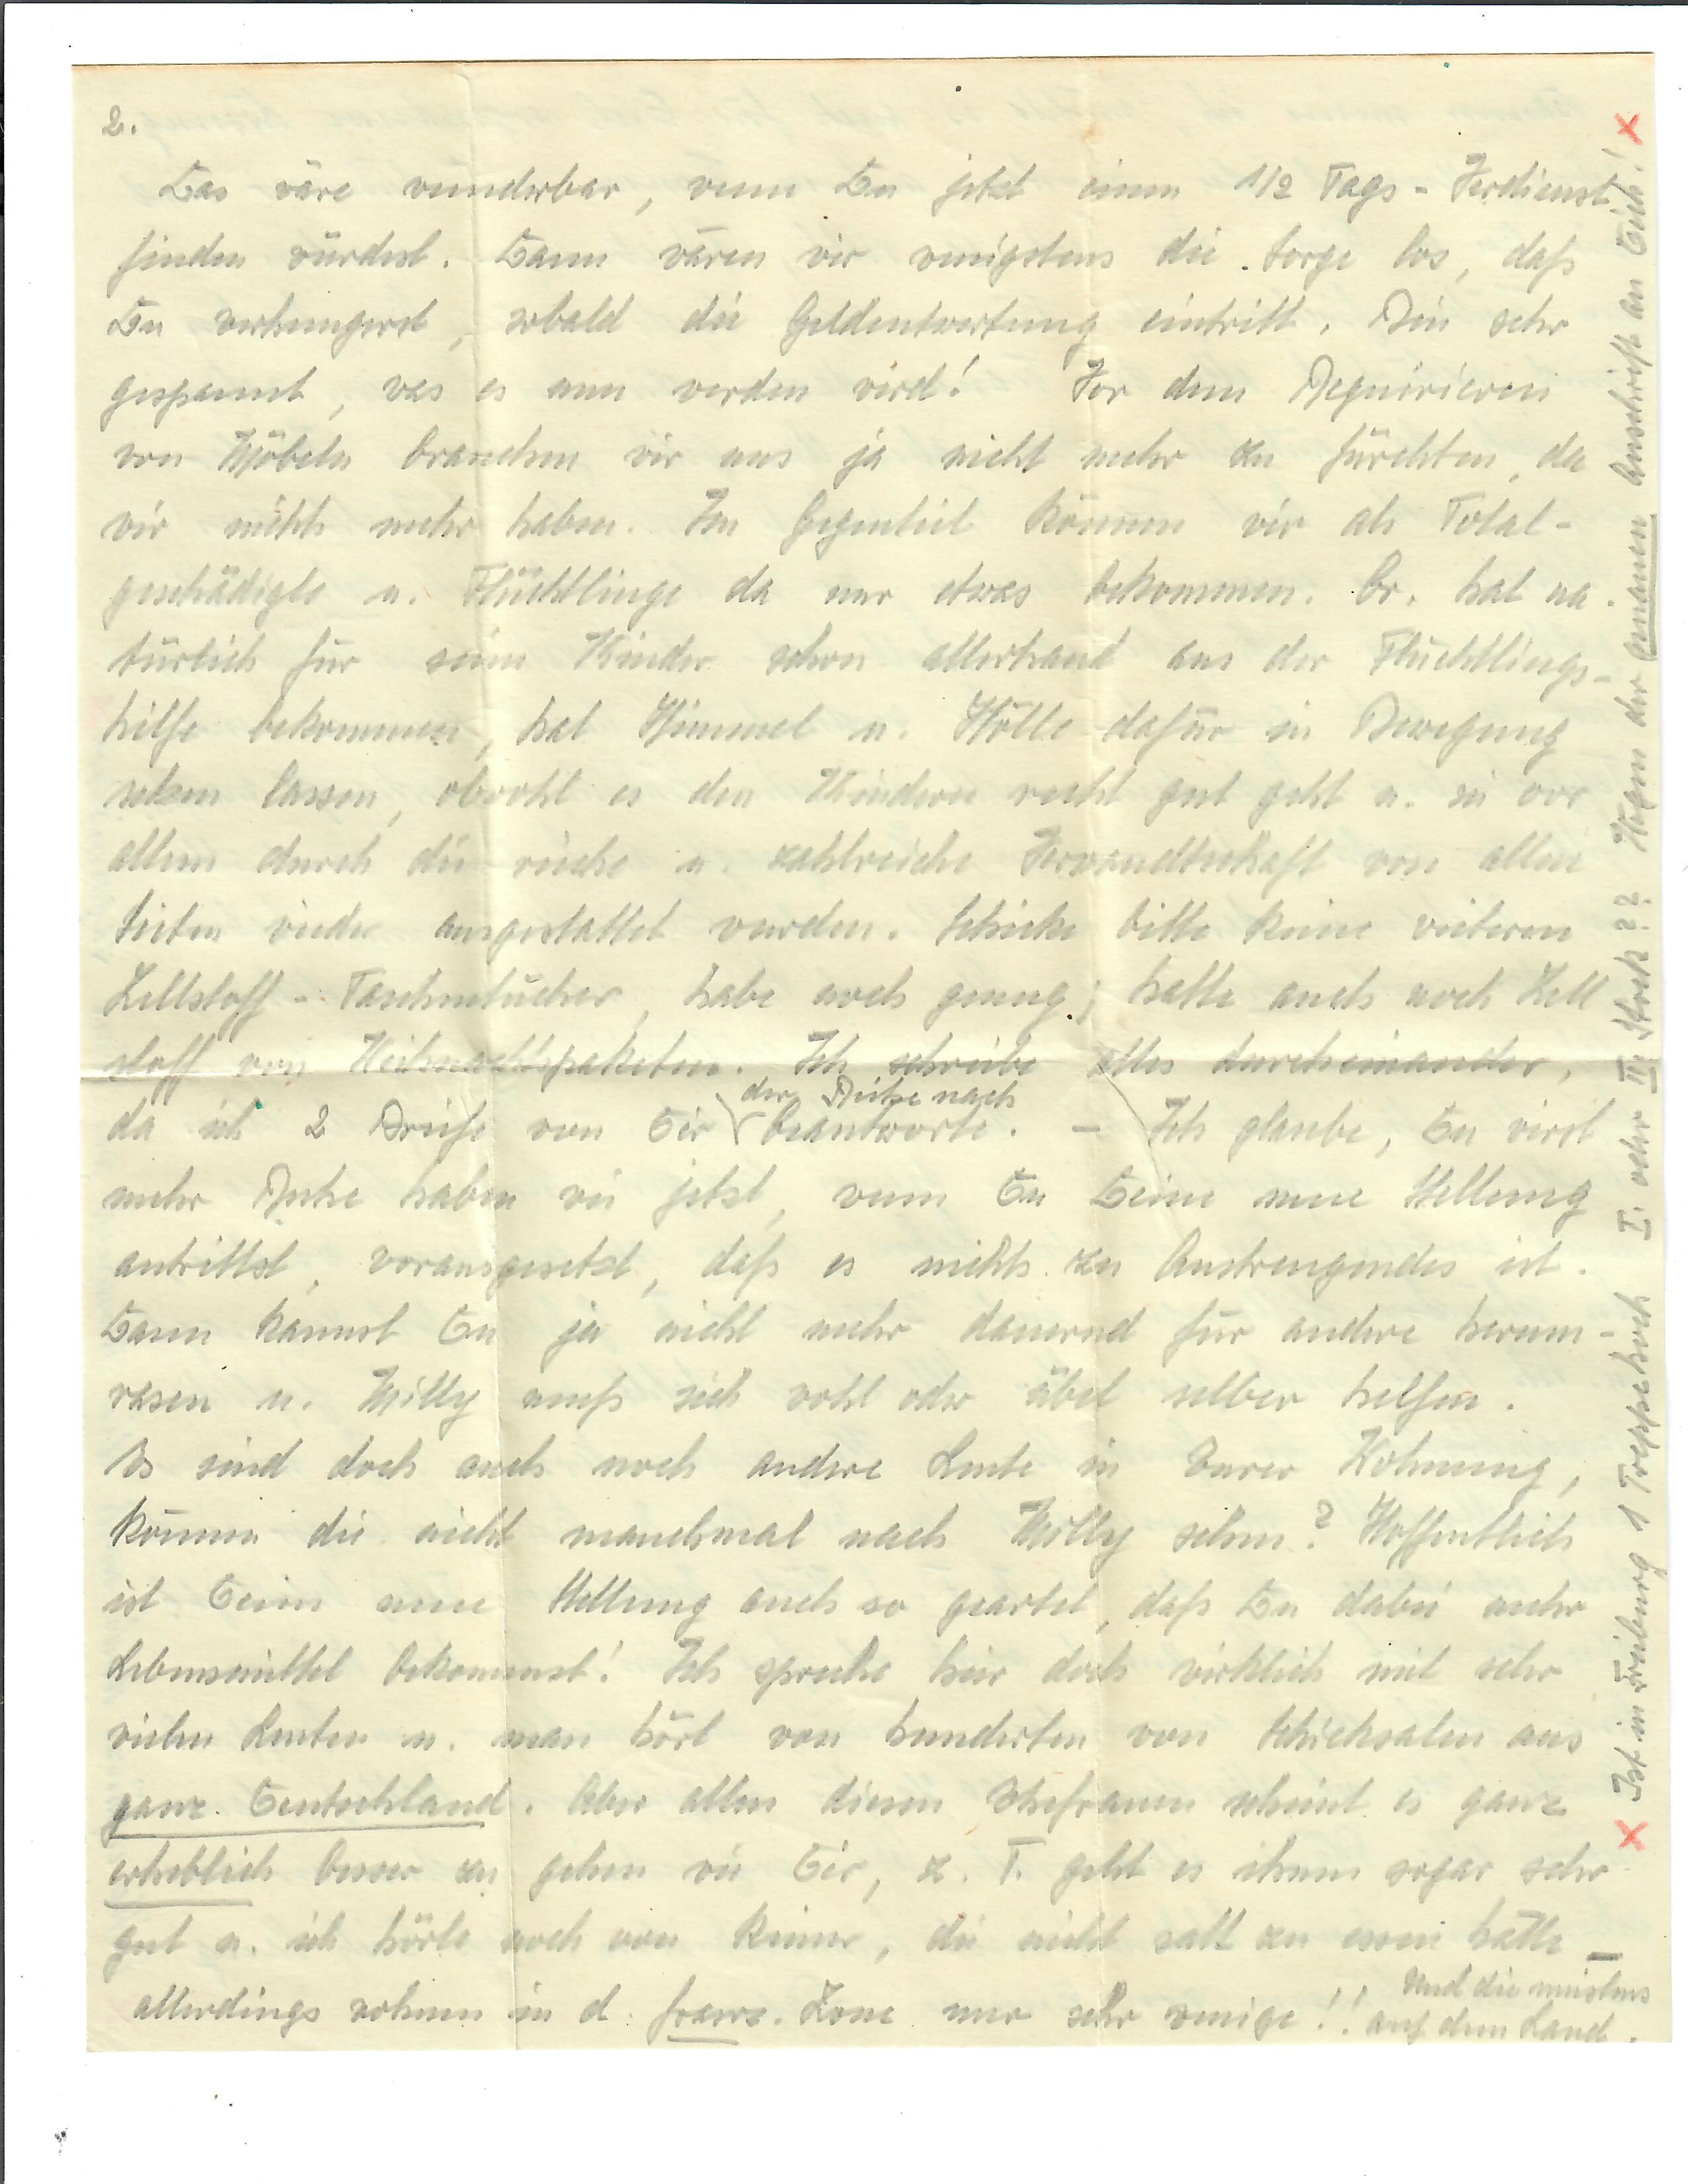 2.
Das wäre wunderbar, wenn Du jetzt einen 1/2 Tags-Verdienst
finden würdest. Dann wären wir wenigstens die Sorge los, daß
Du verhungerst, sobald die Geldentwertung eintritt. Bin sehr
gespannt, was es nun werden wird! Vor dem Requirieren
von Möbeln brauchen wir uns ja nicht mehr zu fürchten, da
wir nichts mehr haben. Im Gegenteil können wir als Total-
geschädigte u. Flüchtlinge da nur etwas bekommen. Er. hat na-
türlich für seine Kinder schon allerhand aus der Flüchtlings-
hilfe bekommen, hat Himmel u. Hölle dafür in Bewegung
setzen lassen, obwohl es den Kindern recht gut geht u. sie vor
allem durch die reiche u. zahlreiche Verwandtschaft von allen
Seiten wieder ausgestattet wurden. Schicke bitte keine weiteren
Zellstoff-Taschentücher, habe noch genug; hatte auch noch Zell
stoff von Weihnachtspaketen. Ich schreibe alles durcheinander,
da ich 2 Briefe von Dir der Reihe nach beantworte. – Ich glaube, Du wirst
mehr Ruhe haben wie jetzt, wenn Du Deine neue Stellung
antrittst, vorausgesetzt, daß es nichts zu Anstrengendes ist.
Dann kannst Du ja nicht mehr dauernd für andere herum-
rasen u. Milly muß sich wohl oder übel selber helfen.
Es sind doch auch noch andere Leute in Eurer Wohnung,
können die nicht manchmal nach Milly sehen? Hoffentlich
ist Deine neue Stellung auch so geartet, daß Du dabei mehr
Lebensmittel bekommst! Ich spreche hier doch wirklich mit sehr
vielen Leuten u. man hört von hunderten von Schicksalen aus
ganz Deutschland. Aber allen diesen Ehefrauen scheint es ganz
erheblich besser zu gehen wie Dir, z. T. geht es ihnen sogar sehr
gut u. ich hörte noch von keiner, die nicht satt zu essen hätte –
allerdings wohnen in d. franz. Zone nur sehr wenige!! und die meistens
auf dem Land.
x Ist in Freiburg 1 Treppe hoch I. oder III Stock?? Wegen der genauen Anschrift an Dich! x